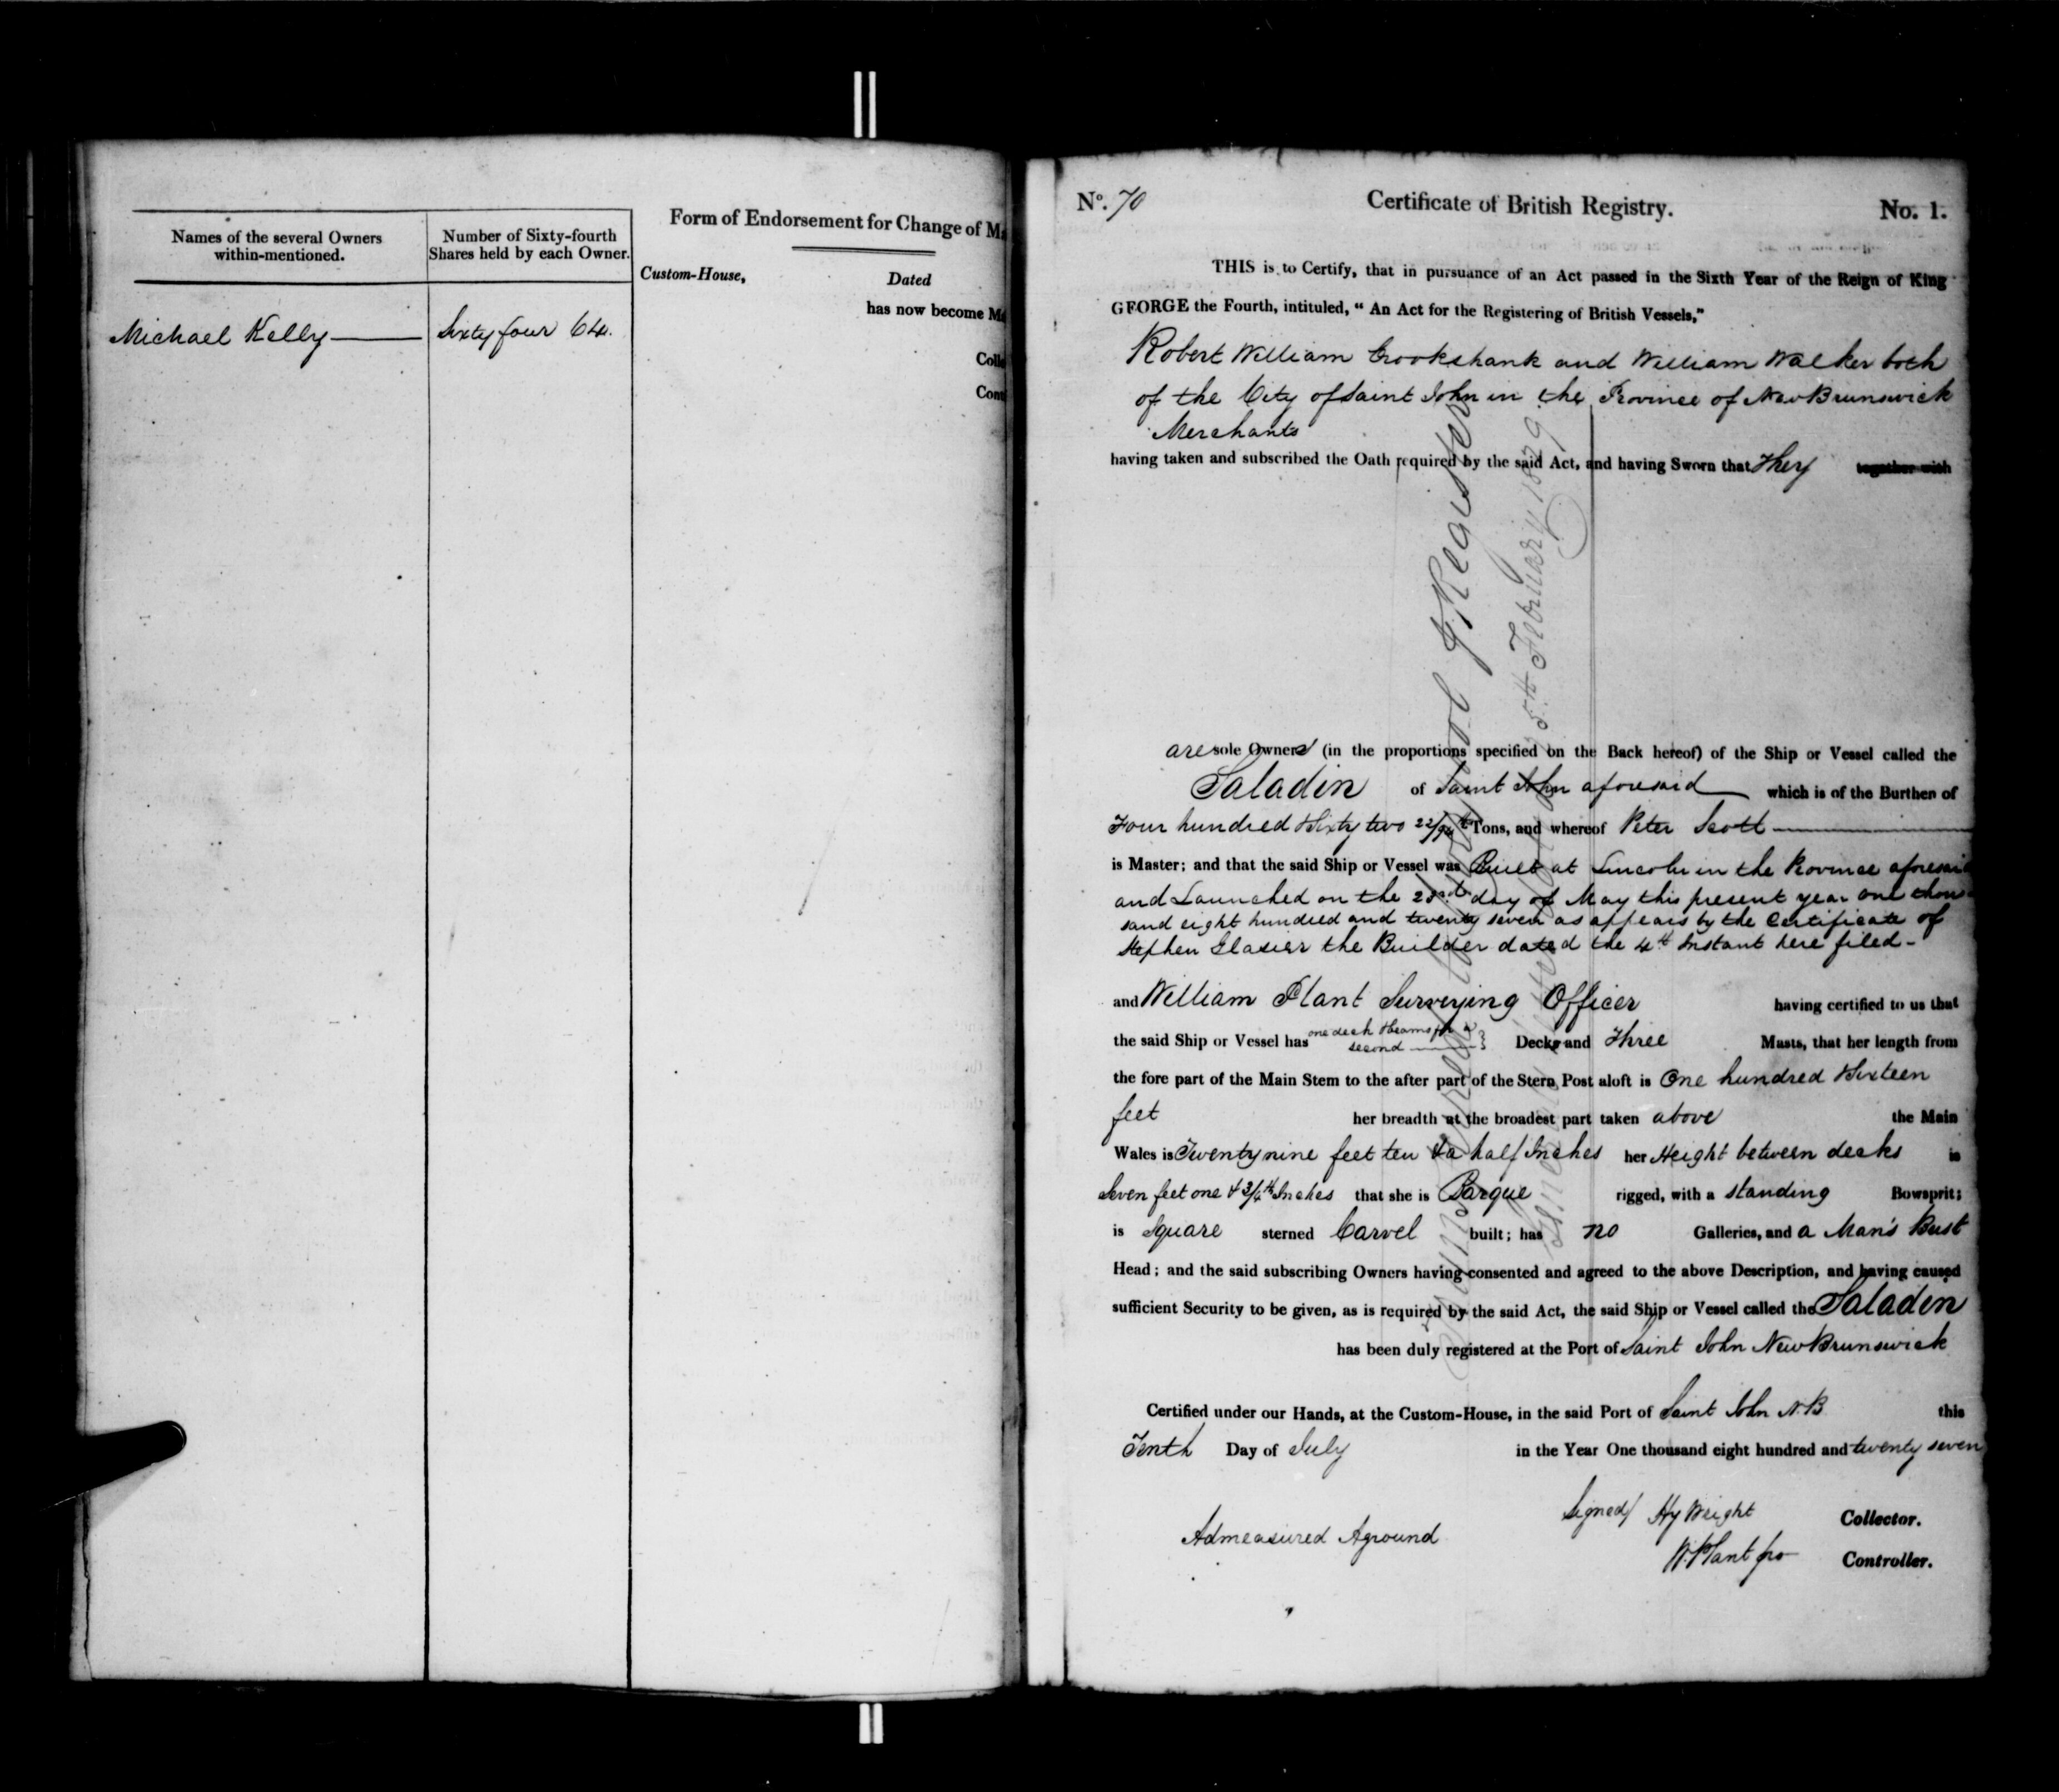 Names of the several Owners within-mentioned.
Number of Sixty-fourth Shares held by each Owner.
Michael Kelly
Sixty four 64.
Form of Endorsement for Change of Ma
Custom-House, Dated
has now become Ma
Colle
Cont
No. 70 Certificate of British Registry. No. 1.
THIS is to Certify, that in pursuance of an Act passed in the Sixth Year of the Reign of King
GEORGE the Fourth, intituled, “ An Act for the Registering of British Vessels,”
Robert William Crookshank and William Walker both
of the City of Saint John in the Province of New Brunswick
Merchants
having taken and subscribed the Oath required by the said Act, and having Sworn that They together with
are sole Owners (in the proportions specified on the Back hereof) of the Ship or Vessel called the
Saladin of Saint John aforesaid which is of the Burthen of
Four hundred & Sixty two 22/94th Tons, and whereof Peter Scott
is Master; and that the said Ship or Vessel was Built at Lincoln in the Province aforesaid
and Launched on the 23rd day of May this present year one thou
sand eight hundred and twenty seven as appears by the Certificate of
Stephen Glasier the Builder dated the 4th Instant here filed-
and William Plant Surveying Officer having certified to us that
the said Ship or Vessel has one deck & beams for a second Decks and Three Masts, that her length from
the fore part of the Main Stem to the after part of the Stern Post aloft is One hundred & Sixteen
feet her breadth at the broadest part taken above the Main
Wales is Twenty nine feet ten & a half Inches her Height between decks is
Seven feet one & 3/4th Inches that she is Barque rigged, with a standing Bowsprit;
is Square sterned Carvel built; has no Galleries, and a Man's Bust
Head; and the said subscribing Owners having consented and agreed to the above Description, and having caused
sufficient Security to be given, as is required by the said Act, the said Ship or Vessel called the Saladin
has been duly registered at the Port of Saint John New Brunswick
Certified under our Hands, at the Custom-House, in the said Port of Saint John N B this
Tenth Day of July in the Year One thousand eight hundred and twenty seven
Signed/ Hy Wright Collector.
W. Plant pro Controller.
Admeasured Aground
Register
February 1829